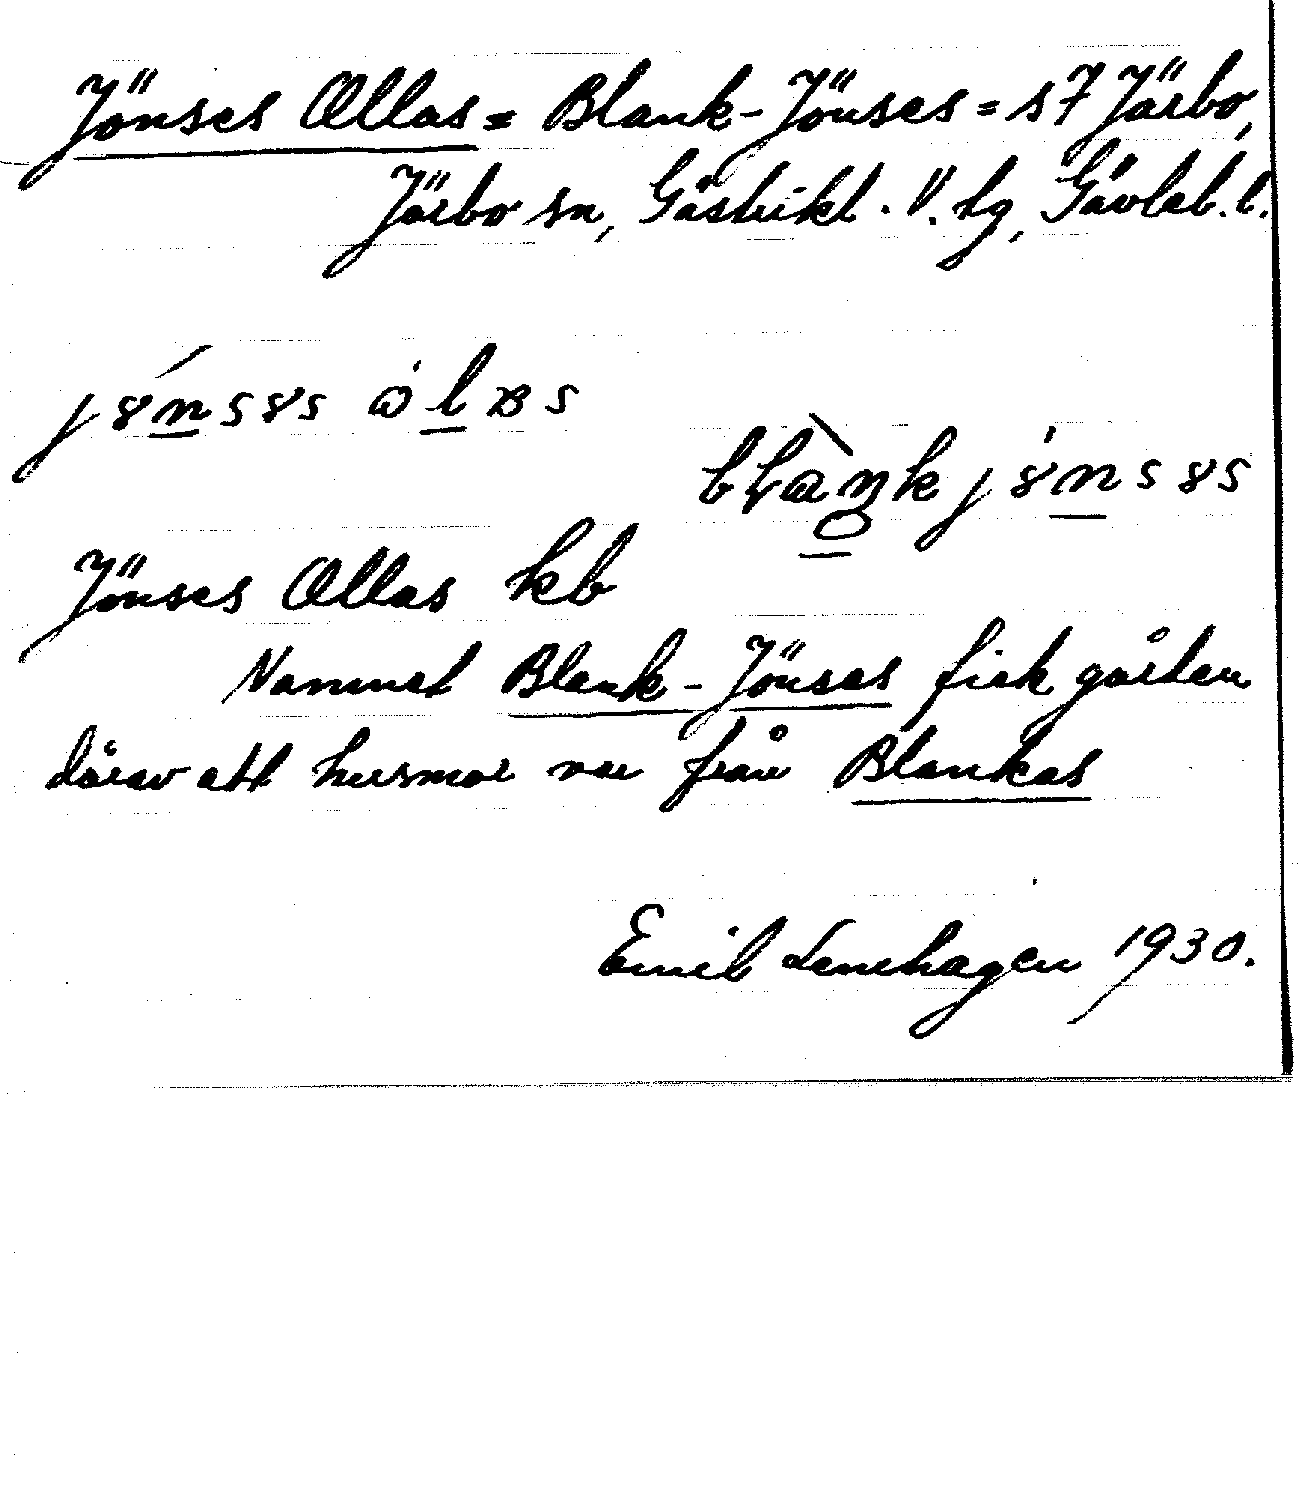 Jönses Ollas = Blank-Jönses = s7 Järbo,
Järbo sn, Gästrikl. V. tg, Gävleb. l.
Jönses Ollas kb
Namnet Blank-Jönses fick gården
därav att husmor var från Blankas
Emil Lenehagen 1930.